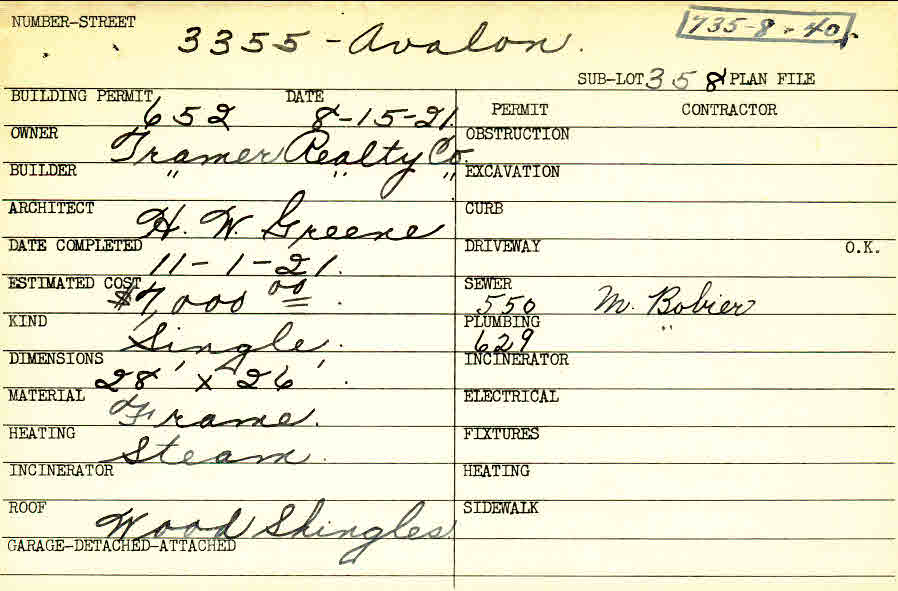 NUMBER-STREET 3355 - Avalon. 735-8-40
SUB-LOT 358 PLAN FILE
BUILDING PERMIT 652 DATE 8-15-21
PERMIT CONTRACTOR
OWNER Tramer Realty Co.
OBSTRUCTION
BUILDER " " "
EXCAVATION
ARCHITECT H. W. Greene
CURB
DATE COMPLETED 11-1-21.
DRIVEWAY O.K.
ESTIMATED COST $7,000 00.
SEWER 550 M. Bobier
KIND Single.
PLUMBING 629 "
DIMENSIONS 28' x 26'.
INCINERATOR
MATERIAL Frame.
ELECTRICAL
HEATING Steam.
FIXTURES
INCINERATOR
HEATING
ROOF Wood Shingles
SIDEWALK
GARAGE-DETACHED-ATTACHED